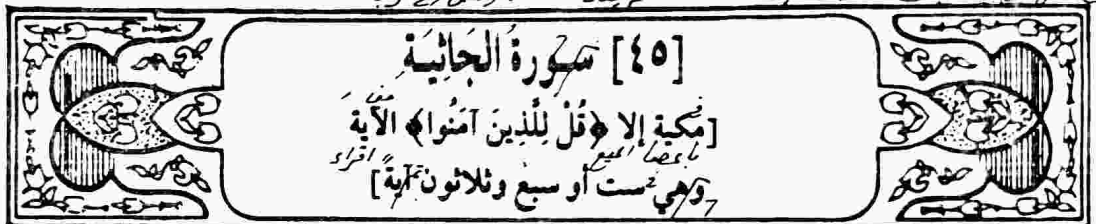 [٤٥] سُورَةُ الْجَاثِيَةِ
[مكية إلا ﴿قُلْ لِلَّذِينَ آمَنُوا﴾ الآيَةَ
وهي ست أو سبع وثلاثون آيةً]